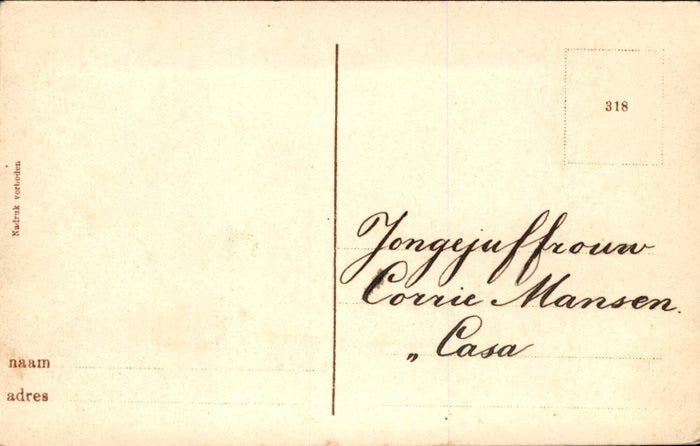 Nadruk verboden
naam
adres
318
Jongejuffrouw
Corrie Mansen.
„ Casa